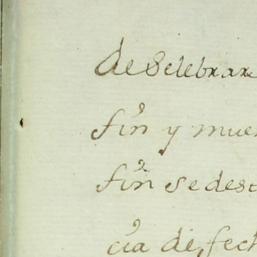 de Selebrar
fin y mue
fin se des
cia de fech